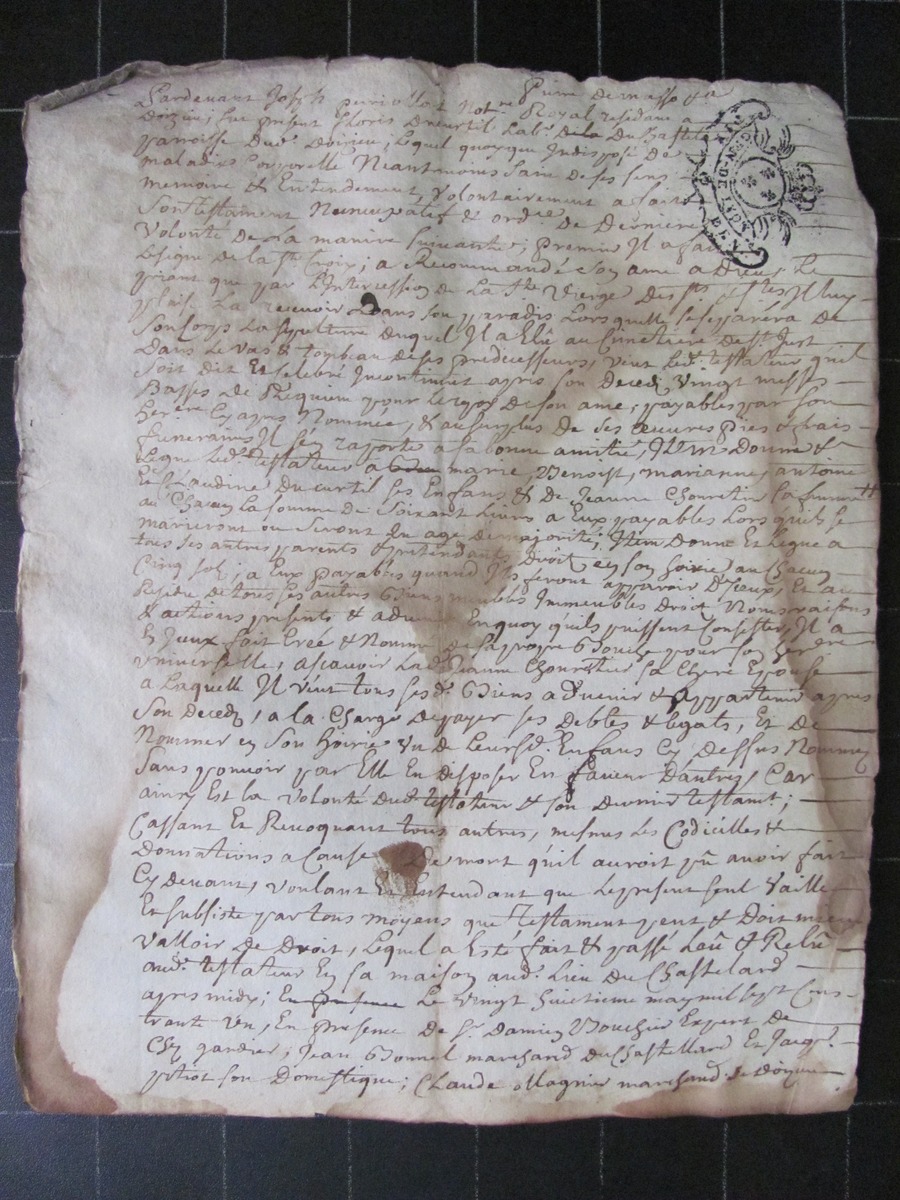 Pardevant Joseph not.re Royal residant a
Doizieu, fut present Floris Ducurtil lab.r du Chastelard
parroisse dud. Doizieu, lequel quoyque Indisposé de
maladie Corporelle Neantmoins Sain de ses sens
memoire & Entendement, Volontairement a fait
Son testament Nuncupatif & ord.re de Derniere
Volonté de La maniere suivante; premier Il a fait
Lesigne de la S.te Croix; a Recommandé son ame a Dieu Le
priant que par L'Intercession de La S.te Vierge des S.ts & S.tes Il luy
plaise La recevoir Dans son paradis Lorsquelle se separera de
son Corps La sepulture duquel Il a Elû au Cimetiere de S.t Just
Dans Le Vas & tombeau de ses predecesseurs, Veut Led. testateur qu'il
soit dit Et Celebré Incontinent apres son Decedz Vingt messes
Basses de Requiem pour le repos De son ame, payables par son
her.ere Cy apres Nommée, & au surplus de ses oeuvres Pies & frais
funeraires Il s'en raporte a sa bonne amitié, Item Donne &
Legue Led. testateur a marie, Benoist, marianne, antoine
Et Claudine Ducurtil ses Enfans & de Jeanne Chouretier sa femme
au Chacun La somme de Soixante Livres a Eux payables Lors qu'ils se
marieront ou seront En age de majorité; Item Donne Et Legue a
tous ses autres parents & pretendants Droit en son hoirie au Chacun
Cinq sol; a Eux payables quand Ils feront apparoir D'Iceux, Et au
Residu de tous ses autres Biens meubles Immeubles Droit Noms raisons
& actions presents & advenir En quoy qu'ils puissent Consister, Il a
fait Creé & Nommé de sa propre Bouche pour son her.ere
Universelle, ascavoir Lad. Jeanne Chouretier sa Chere Epouse
a Laquelle Il Veut tous ses d. Biens advenir & appartenir apres
son Decedz, a la Charge de payer ses Debtes & legats, Et de
Nommer en son hoirie Un de leursd. Enfans Cy Dessus Nommez
sans pouvoir par Elle En disposer En faveur D'autres, Car
ainsy Est la Volonté dud. testateur & son Dernier testam.t;
Cassant Et Revoquant tous autres, mesmes Les Codicilles &
Donnations a Cause de mort qu'il auroit pû avoir fait
Cy devant, Voulant Et Entendant que Le present seul Vaille
Et subsiste par tous moyens que testament peut & Doit mieux
Valloir De Droit, Lequel a Esté fait & passé Leû & Releû
aud. testateur En sa maison aud. Lieu du Chastelard
apres midy; En presence Le Vingt huictieme may mil sept Cens
trente Un, En presence de S.r Damien Bouchier Expert de
jardier, Jean Bonnel marchand du Chastellard Et Jacq.
son Domestique; Claude Magnin marchand de Doizieu